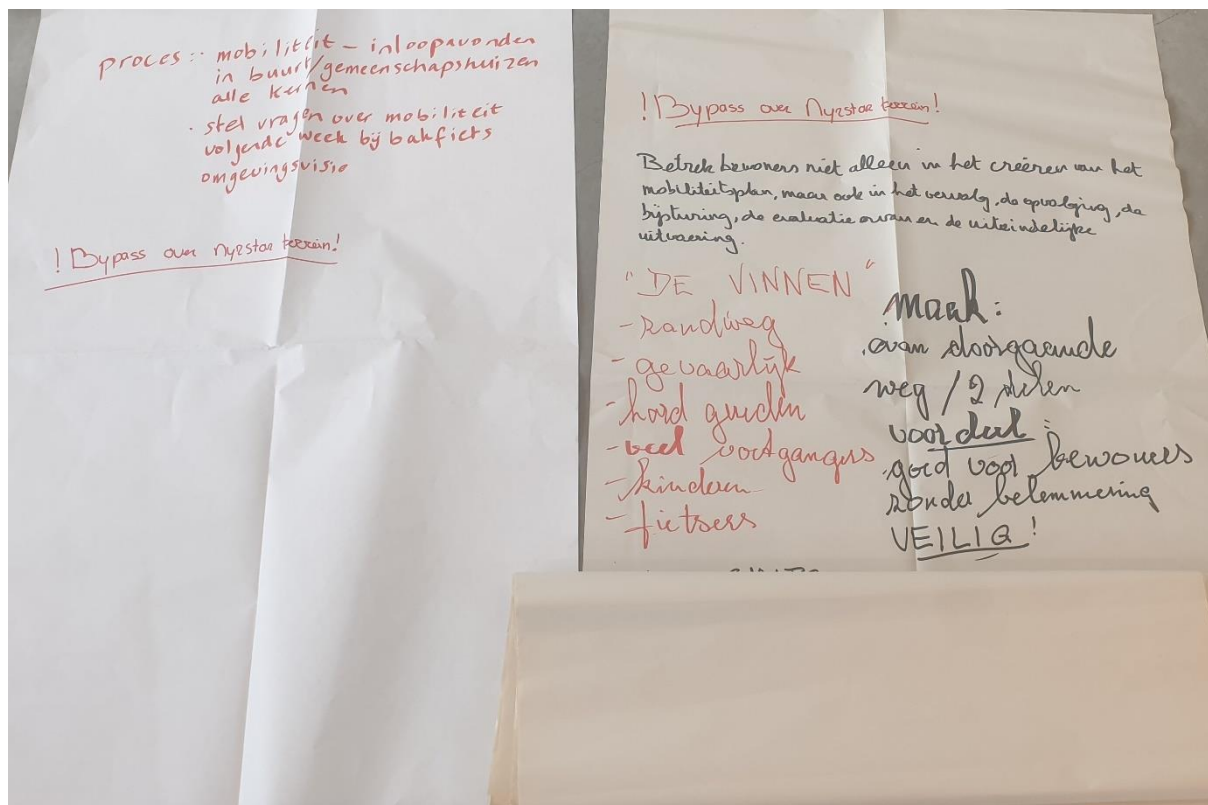 proces: · mobiliteit – inloopavonden
in buurt/gemeenschapshuizen
alle kernen
· stel vragen over mobiliteit
volgende week bij bakfiets
omgevingsvisie
! Bypass over Nyrstar terrein!
! Bypass over Nyrstar terrein!
Betrek bewoners niet alleen in het creëren van het
mobiliteitsplan, maar ook in het vervolg, de opvolging, de
bijsturing, de evaluatie ervan en de uiteindelijke
uitvoering.
"DE VINNEN"
- randweg
- gevaarlijk
- hard
- veel voetgangers
- kinderen
- fietsers
Maak:
.van doorgaande
weg / 2 delen
voordeel:
.goed voor bewoners
zonder belemmering
VEILIG!